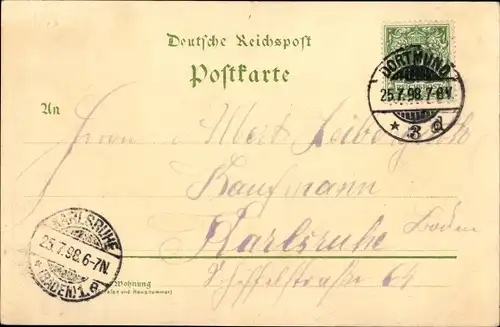 Deutsche Reichspost
Postkarte
DORTMUND
25.7.98.7-8V.
* 3 d
An
Herrn Albert
Kaufmann
Karlsruhe
Baden
64
KARLSRUHE
25.7.98.6-7N.
(BADEN) 1.
Wohnung